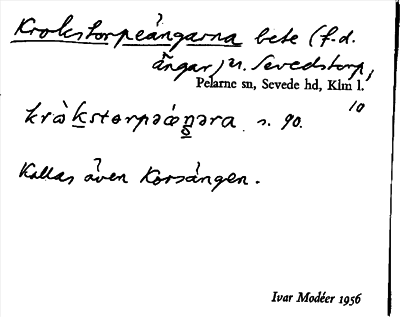 Krokstorpeängarna bete (f.d.
ängar) N. Sevedstorp,
Pelarne sn, Sevede hd, Klm l.
10
kròkstorpəæŋəra s. 90.
Kallas även Korsängen.
Ivar Modéer 1956